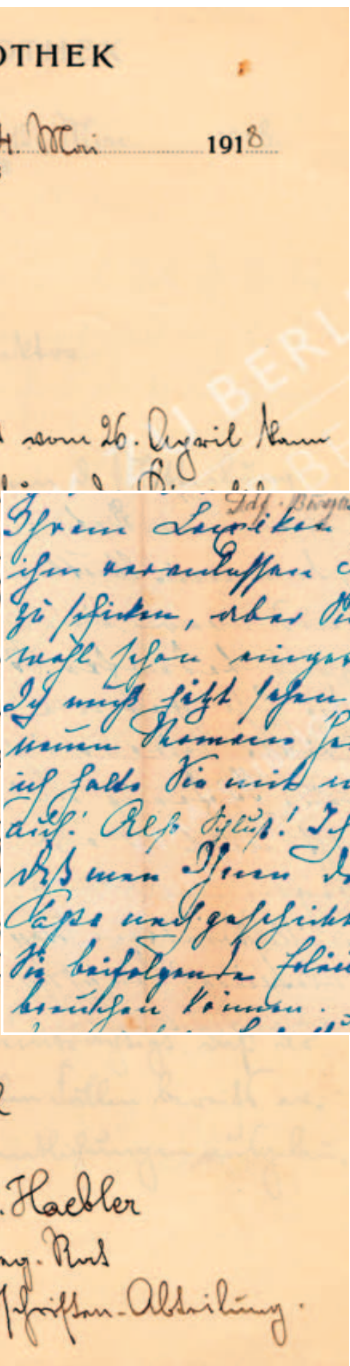 OTHEK
4. Mai 1918
vom 26. April kann
Ihrem Lexikon
ihm veranlassen
zu schicken, aber Sie
wohl schon einger
Ich muß jetzt sehen
neuen Romane
ich halte Sie mit
auf! Also Schluß! Ich
daß man Ihnen
nachgeschickt
Sie beifolgende
brauchen können.
Haebler
Rat
schriften-Abteilung.
ZU BERL